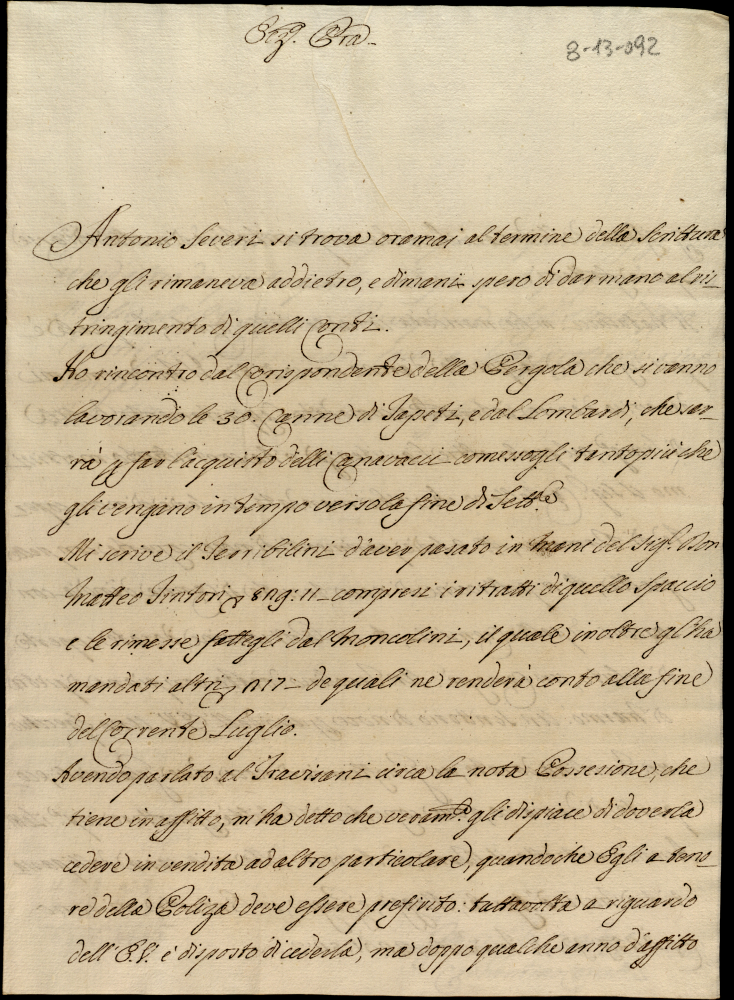 Ecc.za Pra-
8-13-092
Antonio Severi si trova oramai al termine della Scrittura
che gli rimaneva addietro, e dimani spero di dar mano al ris-
tringimento di quelli Conti.
Ho rincontro dal Corrispondente della Pergola che si vanno
lavorando le 30. Canne di Tapeti, e dal Lombardi, che sar-
rà p far l'acquisto delli Canavacci comessogli tantopiù che
gli vengano in tempo verso la fine di Sett.e
Mi scrive il Terribilini d'aver pasato in mani del Sig.r Don
Matteo Tintori compresi i ritratti di quello Spaccio
e le rimesse fattegli dal Moncolini, il quale inoltre gl'ha
mandati altri de quali ne renderà conto alla fine
del Corrente Luglio.
Avendo parlato al Travisani circa la nota Possesione, che
tiene in affitto, m'ha detto che veram.te gli dispiace di doverla
cedere in vendita ad altro particolare, quandoche Egli a teno-
re della Poliza deve essere preferito: tuttavolta a riguardo
dell' E.V. è disposto di cederla, ma doppo qualche anno d'affitto